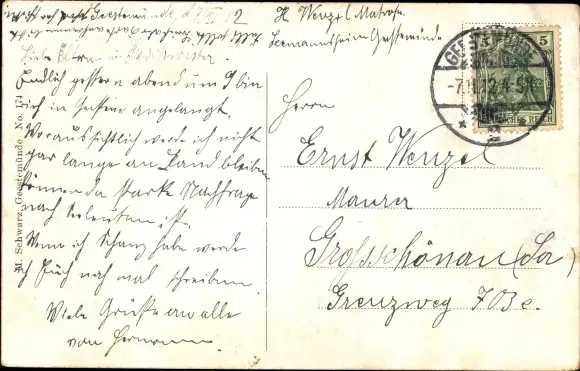 Geestemünde, d. 7/II 12
Liebe Eltern u Geschwister
Endlich gestern abend um 9 bin
ich in Geestem angelangt.
Voraussichtlich werde ich nicht
gar lange an Land bleiben
können da starke Nachfrage
nach Seeleuten ist.
Wenn ich Schanz habe werde
ich Euch noch mal schreiben.
Viele Grüße an alle
von Hermann.
M. Schwarz, Geestemünde No. 174
H. Wenzel Matrose
Seemannsheim Geestemünde
GEESTEMÜNDE
-7.11.12.4-5N.
5 5
DEUTSCHES REICH
Herrn
Ernst Wenzel
Maurer
Grossschönau (Sa)
Grenzweg 703c.